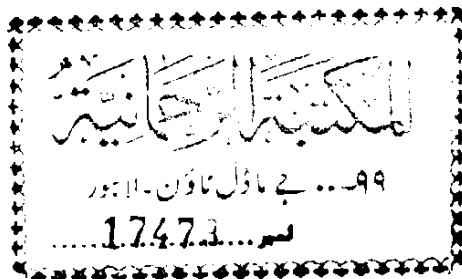 المكتبة الرحمانية
۹۹... جے ماڈل ٹاؤن۔ لاہور
نمبر....17473.....